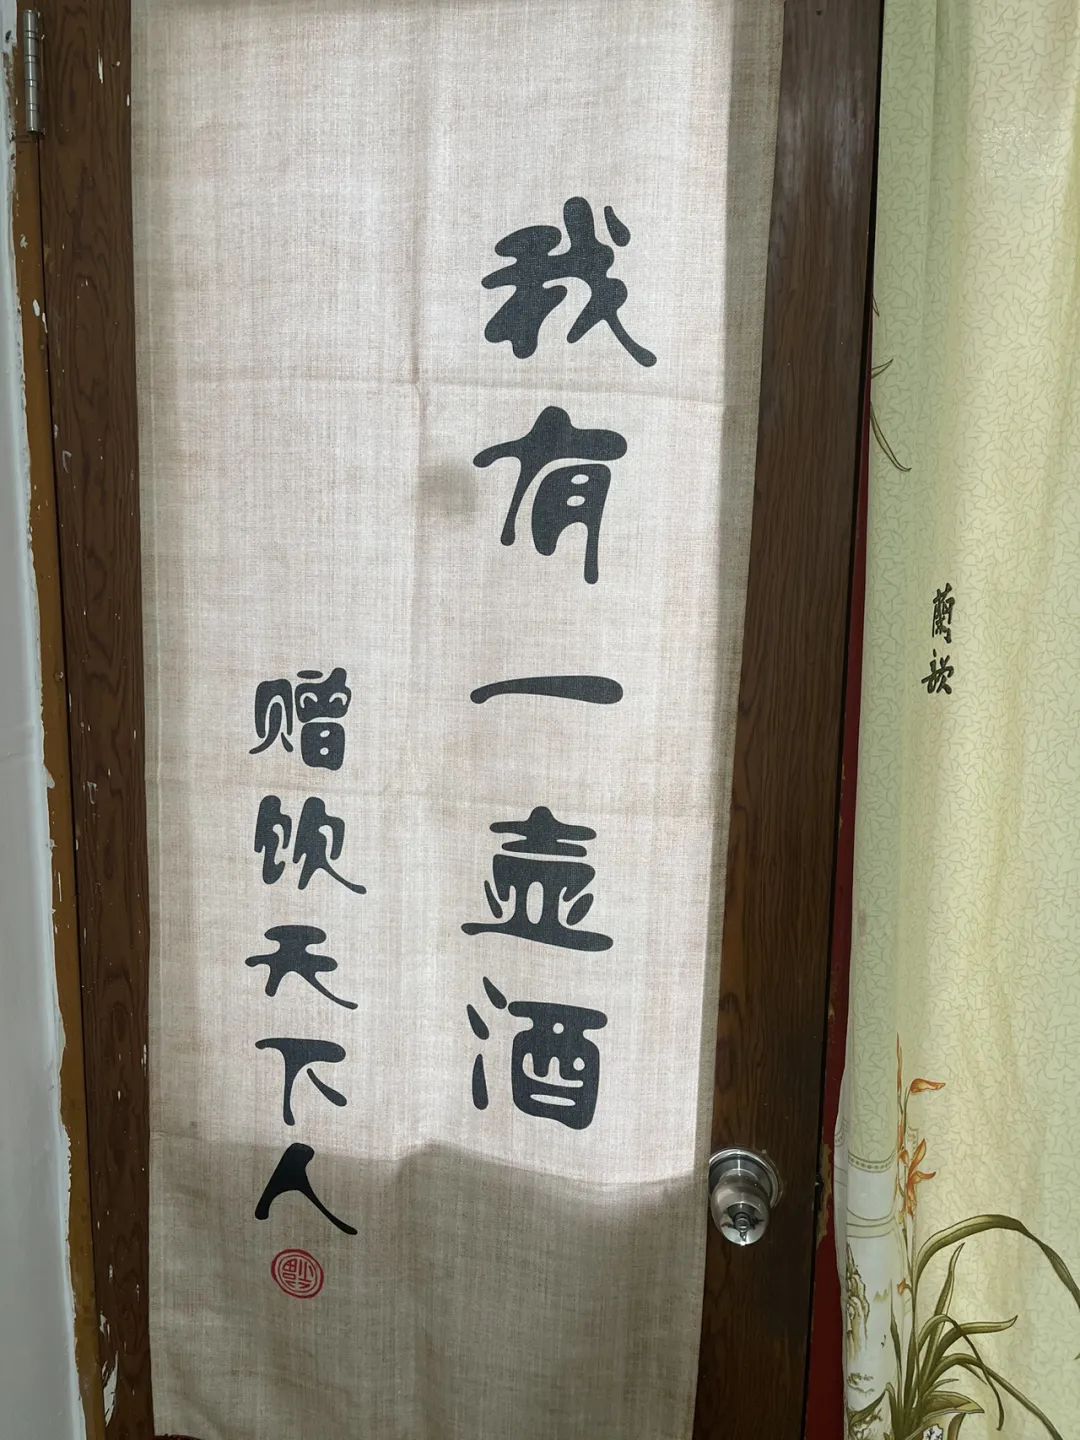 我有一壶酒
赠饮天下人
蘭韵